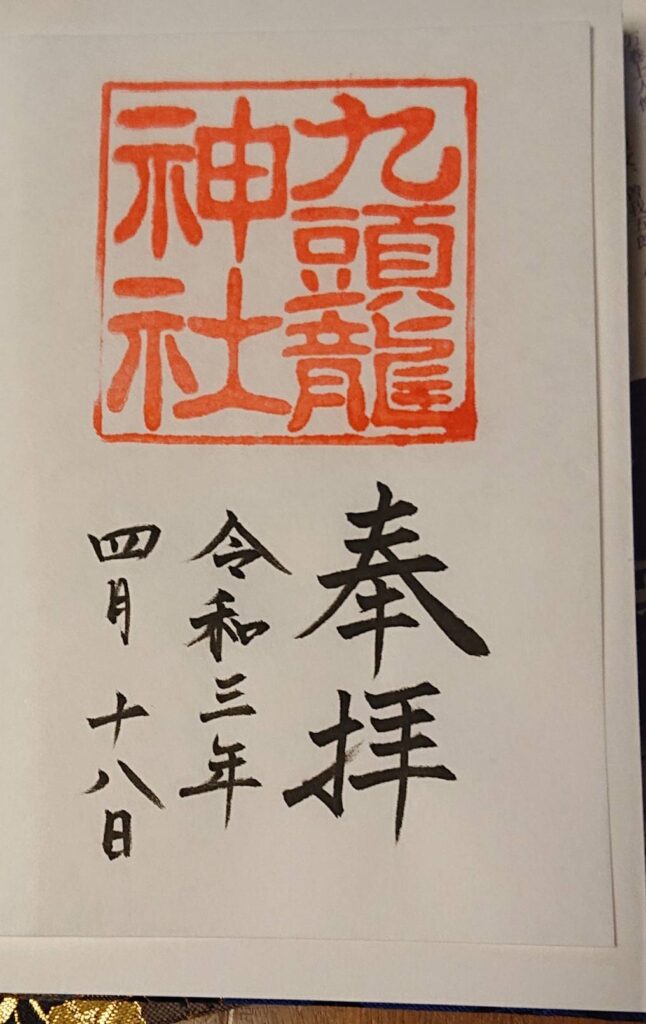 九頭龍
神社
奉拝
令和三年
四月十八日